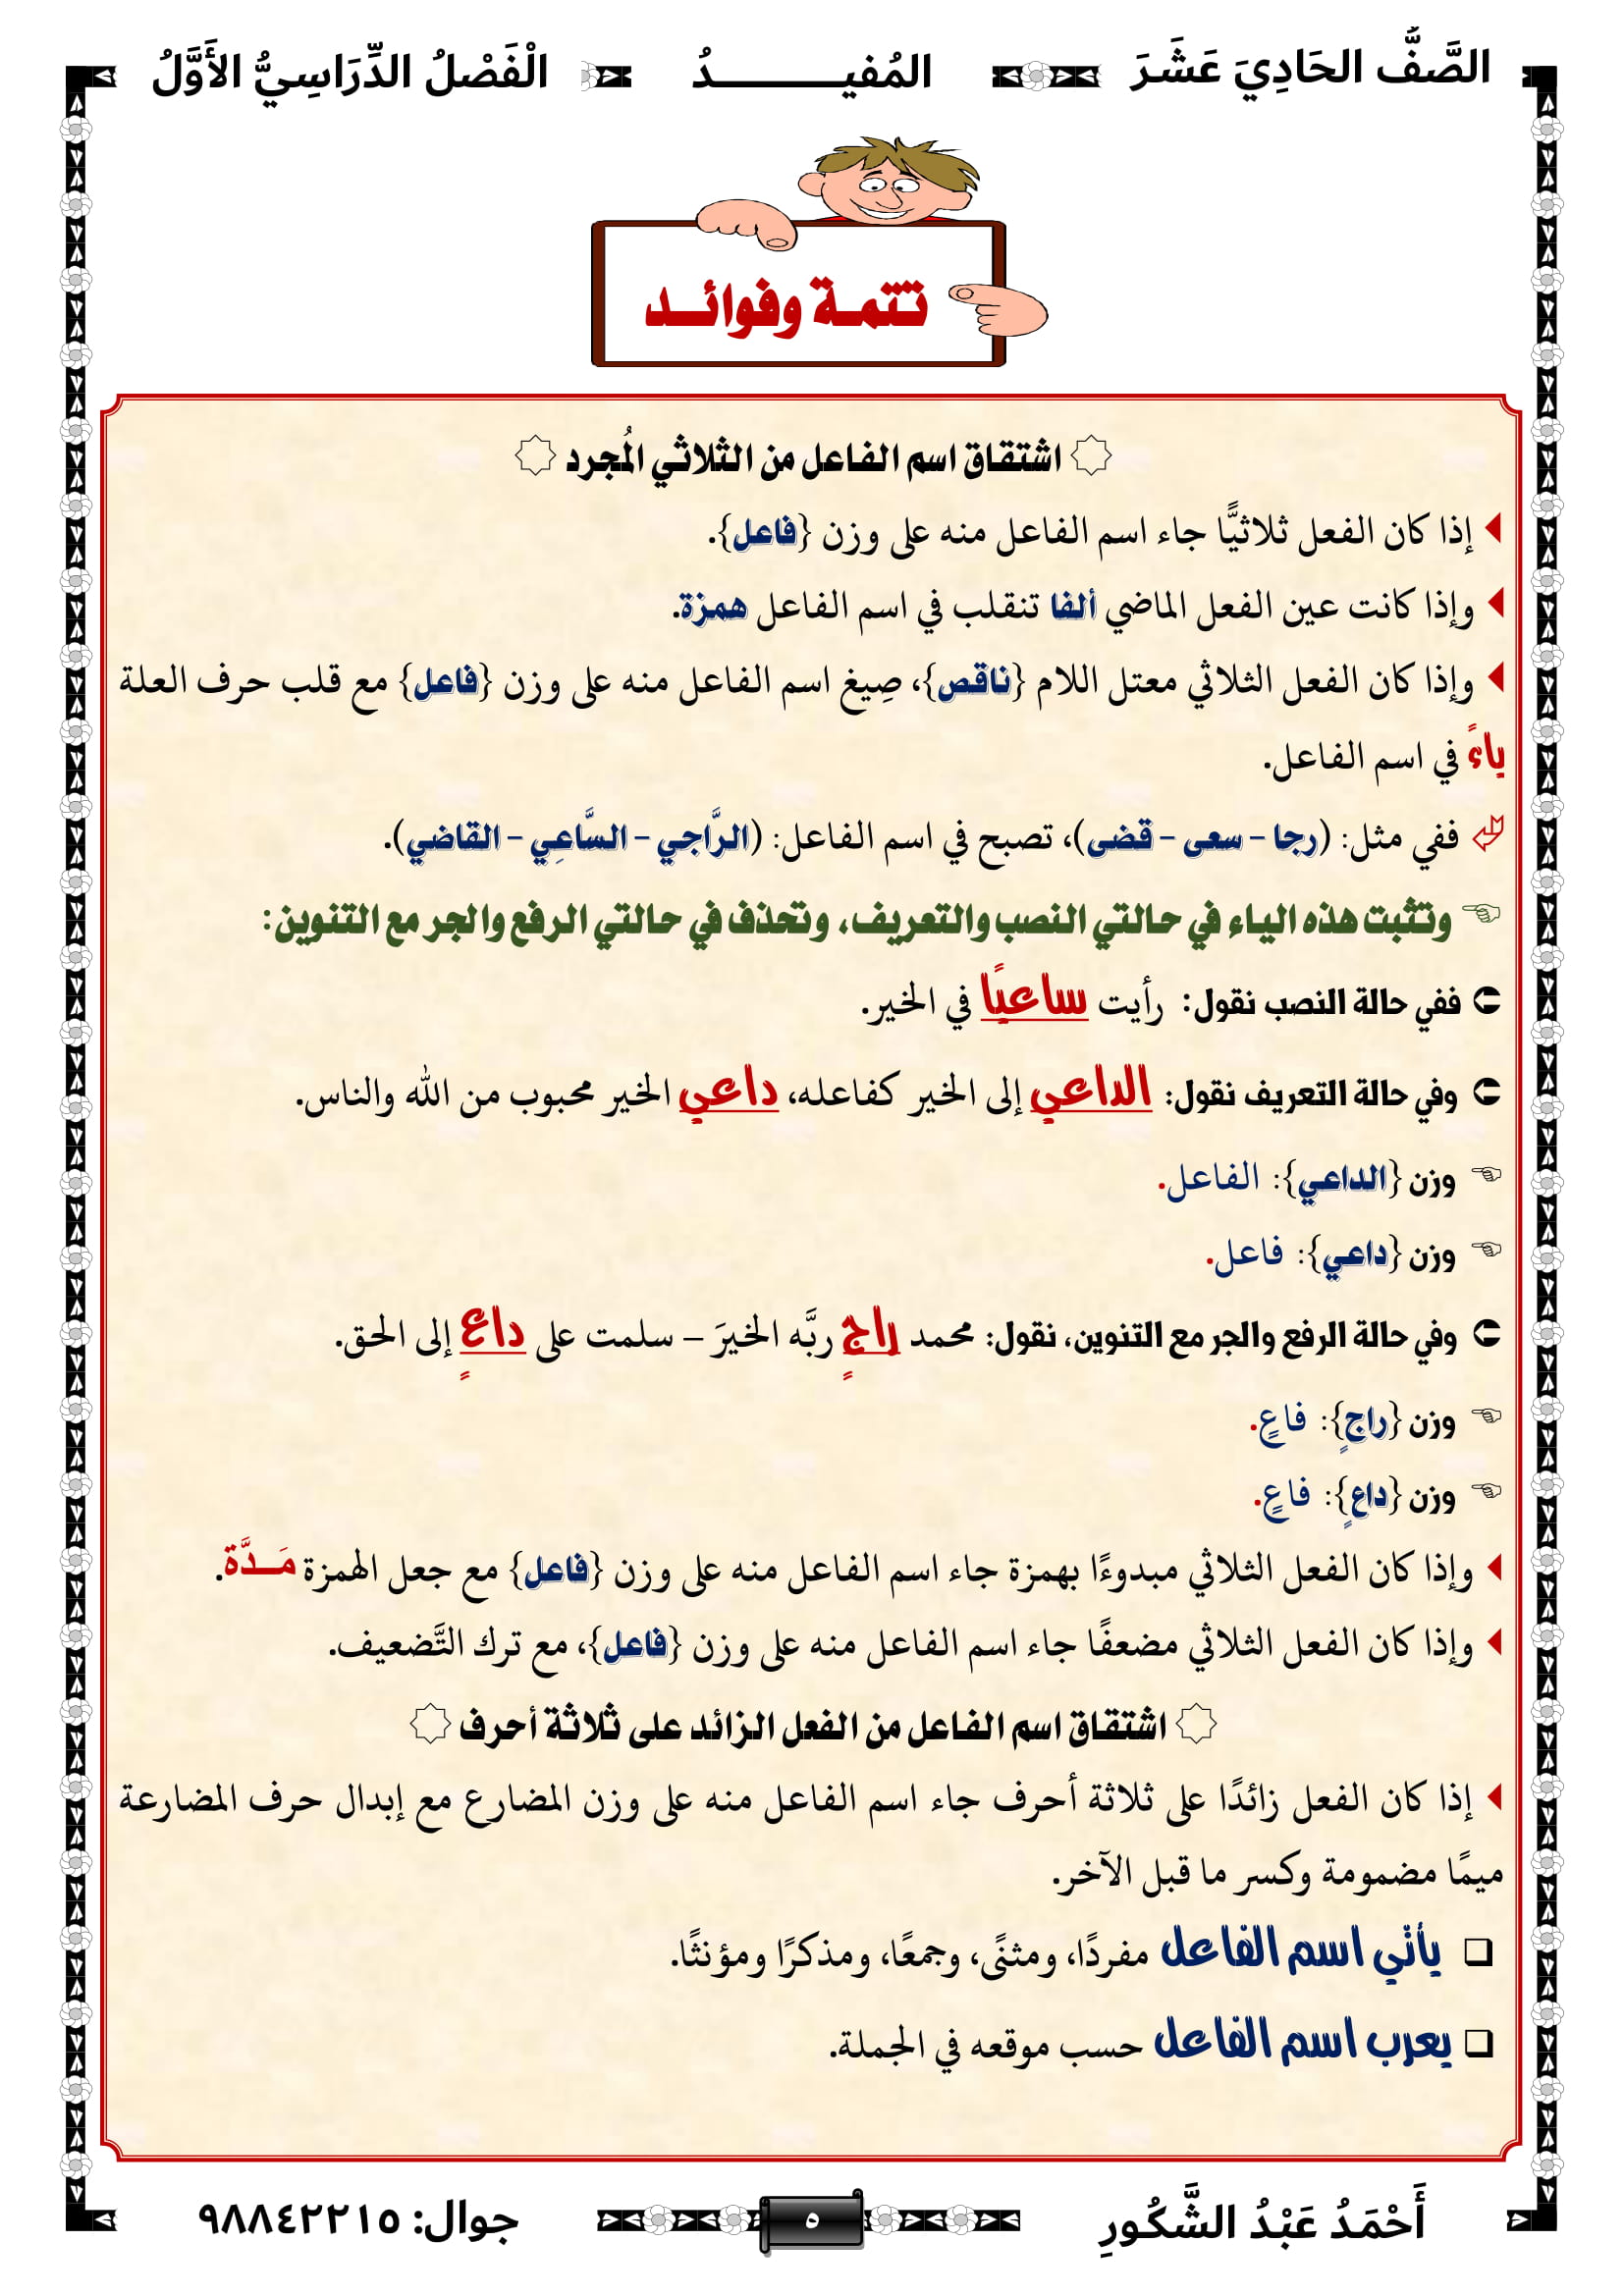 الصَّفُّ الحَادِيَ عَشَرَ المُفيــــــــــدُ الْفَصْلُ الدِّرَاسِيُّ الأَوَّلُ
تتمـة وفوائــد
اشتقاق اسم الفاعل من الثلاثي المُجرد
إذا كان الفعل ثلاثيًّا جاء اسم الفاعل منه على وزن {فاعل}.
وإذا كانت عين الفعل الماضي ألفا تنقلب في اسم الفاعل همزة.
وإذا كان الفعل الثلاثي معتل اللام {ناقص}، صِيغ اسم الفاعل منه على وزن {فاعل} مع قلب حرف العلة
ياءً في اسم الفاعل.
ففي مثل: (رجا – سعى – قضى)، تصبح في اسم الفاعل: (الرَّاجي – السَّاعِي – القاضي).
وتثبت هذه الياء في حالتي النصب والتعريف، وتحذف في حالتي الرفع والجر مع التنوين:
ففي حالة النصب نقول: رأيت ساعيًا في الخير.
وفي حالة التعريف نقول: الداعي إلى الخير كفاعله، داعي الخير محبوب من الله والناس.
وزن {الداعي}: الفاعل.
وزن {داعي}: فاعل.
وفي حالة الرفع والجر مع التنوين، نقول: محمد راجٍ ربَّه الخيرَ – سلمت على داعٍ إلى الحق.
وزن {راجٍ}: فاعٍ.
وزن {داعٍ}: فاعٍ.
وإذا كان الفعل الثلاثي مبدوءًا بهمزة جاء اسم الفاعل منه على وزن {فاعل} مع جعل الهمزة مَــدَّة.
وإذا كان الفعل الثلاثي مضعفًا جاء اسم الفاعل منه على وزن {فاعل}، مع ترك التَّضعيف.
اشتقاق اسم الفاعل من الفعل الزائد على ثلاثة أحرف
إذا كان الفعل زائدًا على ثلاثة أحرف جاء اسم الفاعل منه على وزن المضارع مع إبدال حرف المضارعة
ميمًا مضمومة وكسر ما قبل الآخر.
يأتي اسم الفاعل مفردًا، ومثنًى، وجمعًا، ومذكرًا ومؤنثًا.
يعرب اسم الفاعل حسب موقعه في الجملة.
أَحْمَدُ عَبْدُ الشَّكُورِ ٥ جوال: ٩٨٨٤٢٢١٥